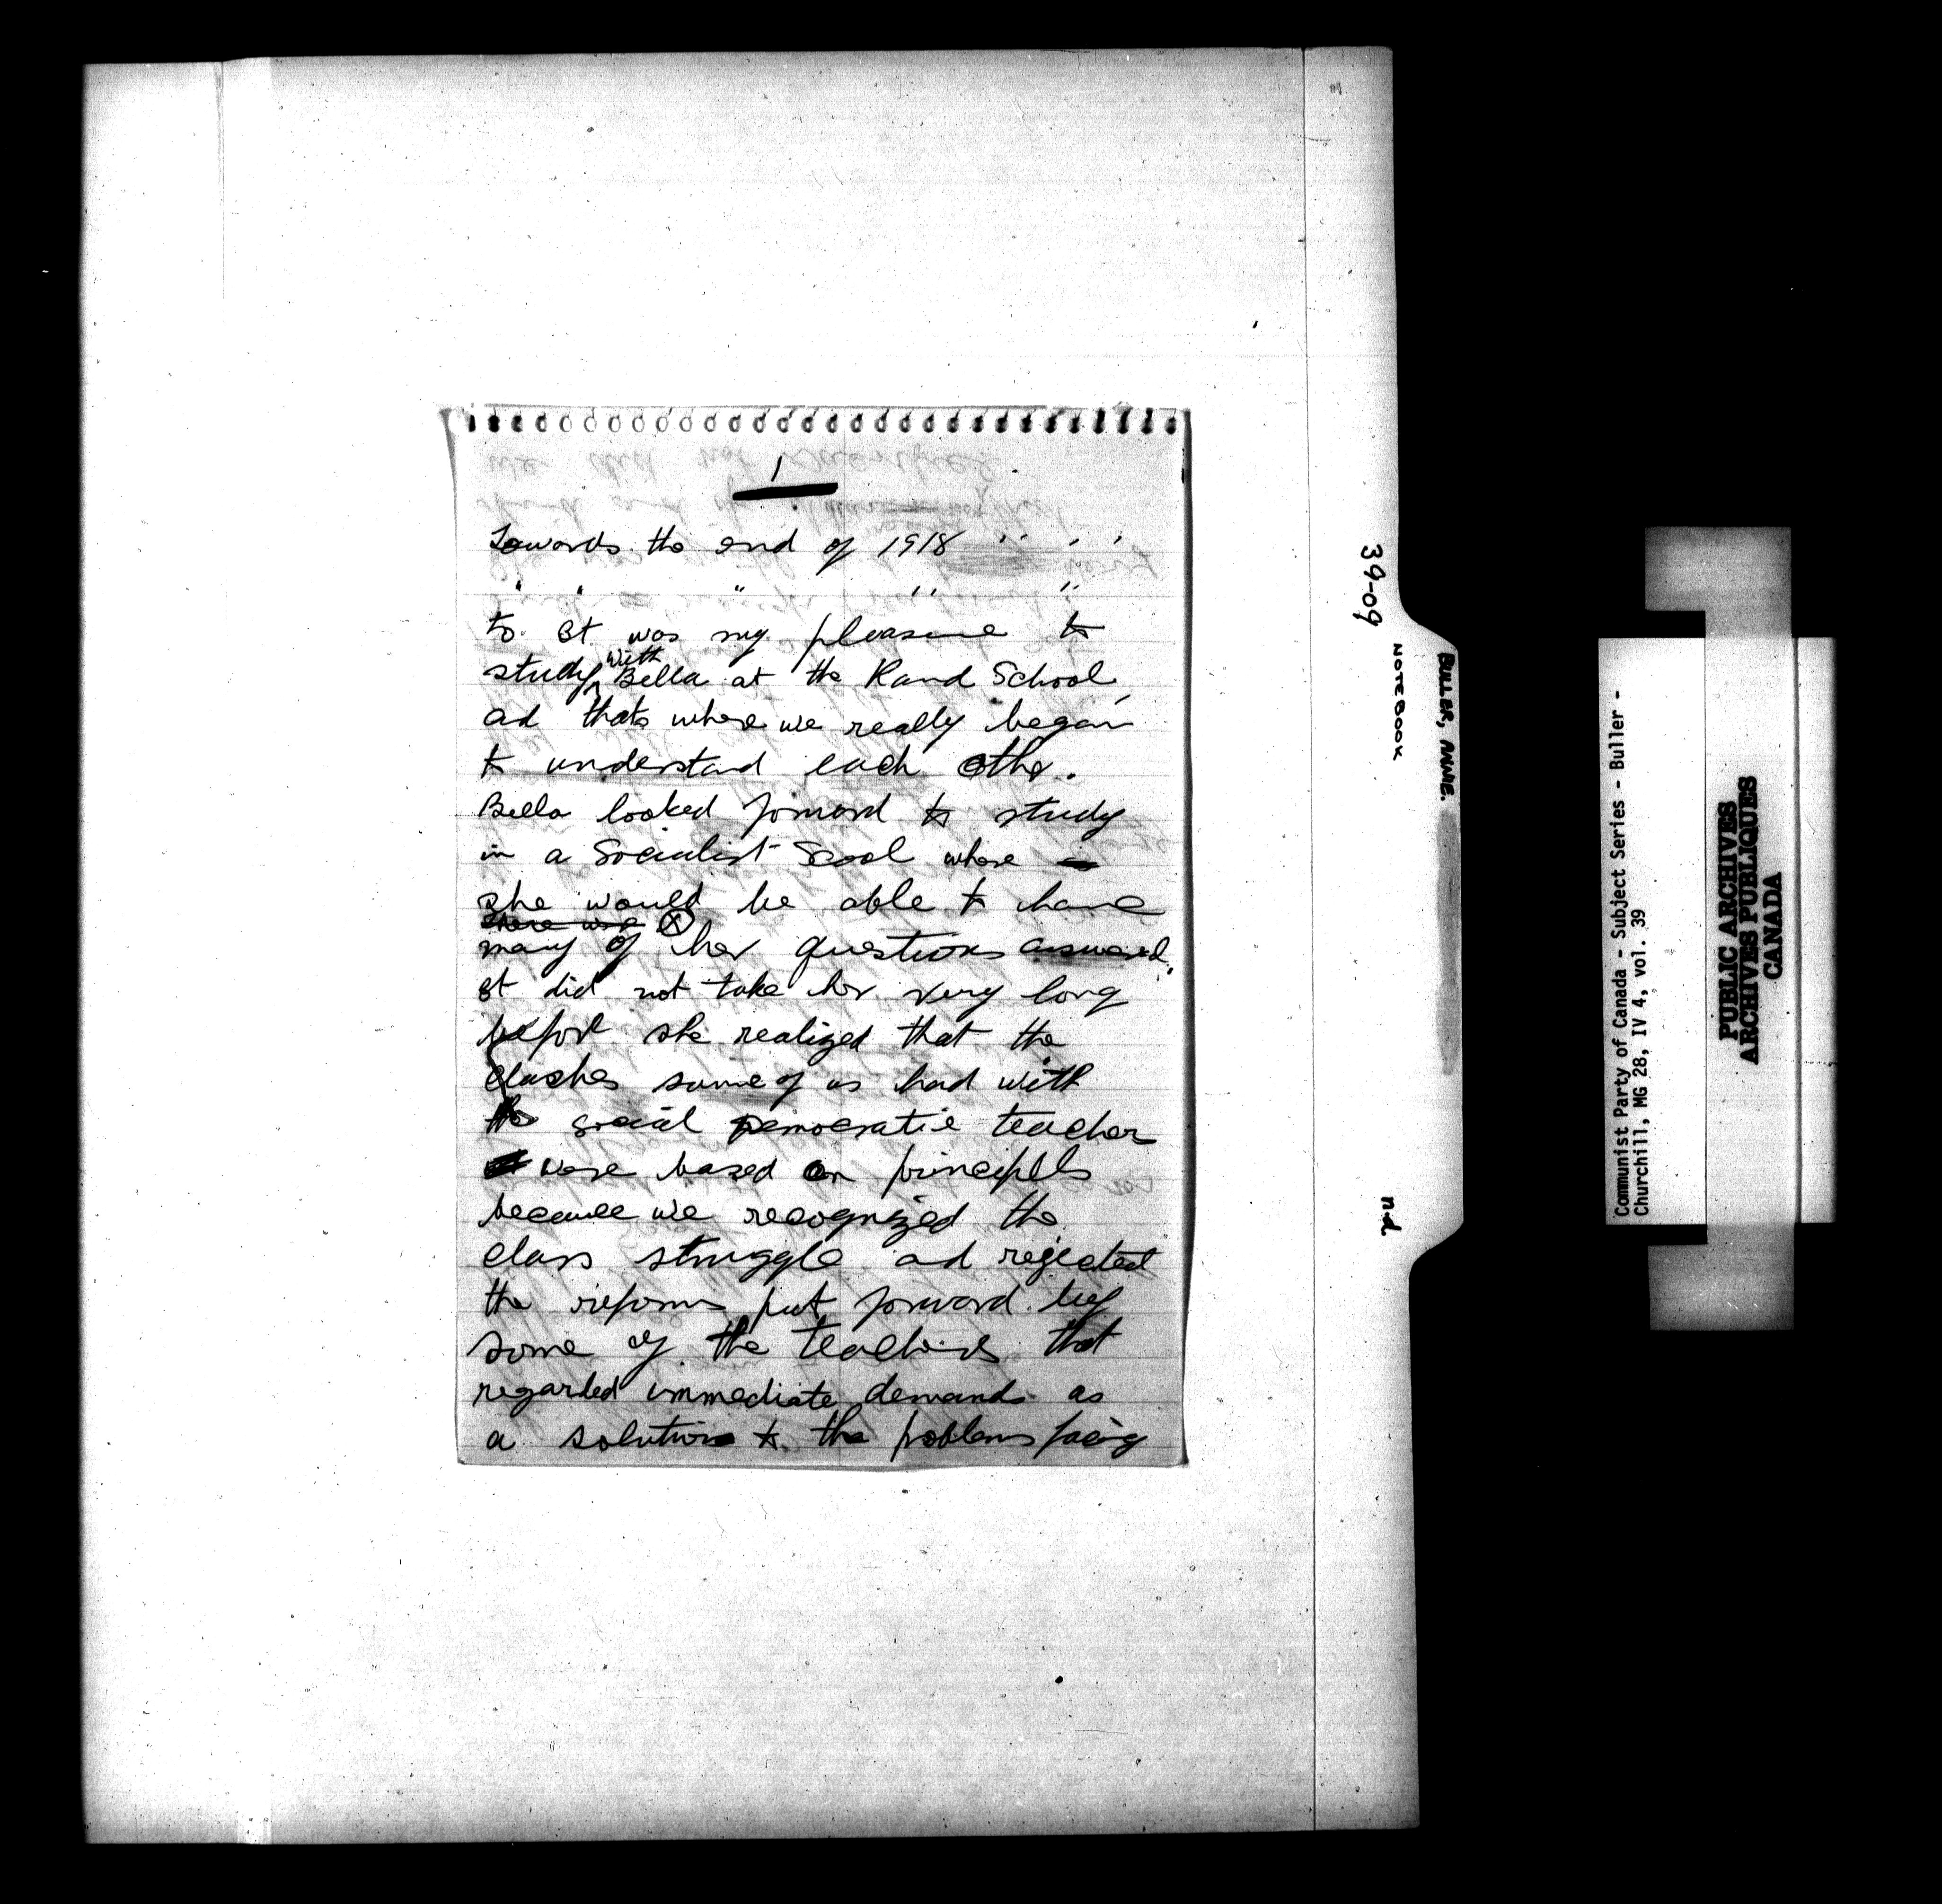 1
Towards the end of 1918 " " " "
" " " " "
to It was my pleasure to
study with Bella at the Rand School,
ad thats where we really began
to understand each other.
Bella looked forward to study
in a Socialist Scool where
she would be able to have
there was ⓧ
many of her questions answered.
It did not take her very long
before she realized that the
clashes some of us had with
the social Democratic teacher
were based on principles
because we recognized the
class struggle ad rejected
the reforms put forward by
some of the teachers that
regarded immediate demands as
a solution to the problems facing
39-09
NOTEBOOK
n.d.
BULLER, ANNIE.
Communist Party of Canada - Subject Series - Buller -
Churchill, MG 28, IV 4, vol. 39
PUBLIC ARCHIVES
ARCHIVES PUBLIQUES
CANADA